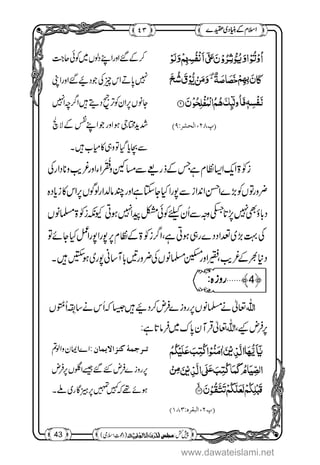 اسلام کے بنیادی عقیدے ٤٣
اُوۡتُوۡا وَیُؤْثِرُوۡنَ عَلٰۤی اَنۡفُسِہِمْ وَلَوْ
کَانَ بِہِمْ خَصَاصَۃٌ ؕ۟ وَمَنۡ یُّوۡقَ شُحَّ
نَفْسِہٖ فَاُولٰٓئِکَ ہُمُ الْمُفْلِحُوۡنَ ۚ﴿۹﴾
(پ۲۸، الحشر:۹)
گئے کے کر اور اپنے دلوں میں کوئی حاجت
نہیں پاتے اس چیز کی جو دیئے گئے اور اپنی
جانوں پر ان کو ترجیح دیتے ہیں اگرچہ انہیں
شدید محتاجی ہو اور جو اپنے نفس کے لالچ
سے بچایا گیا تو وہی کامیاب ہیں۔
زکوٰۃ ایک ایسا نظام ہے جس کے ذریعے سے مساکین، فقراء اور غریب و نادار کی
ضرورتوں کو بڑے احسن انداز سے پورا کیا جاسکتا ہے اور مالدار لوگوں پر اس کا زیادہ
دباؤ بھی نہیں پڑتا جس کی وجہ سے اُن کیلئے کوئی مشکل پیدا نہیں ہوتی کیونکہ زکوٰۃ مسلمانوں
کی ایک بہت بڑی تعداد دے رہی ہوتی ہے، اگر زکوٰۃ کے نظام پر پورا پورا عمل کیا جائے تو
دنیا بھر کے غریب، فقیر اور مسکین مسلمانوں کی ضرورتیں بآسانی پوری ہوسکتی ہیں۔
﴿4﴾......روزہ:
اللہ تعالیٰ نے مسلمانوں پر روزے فرض کردیئے ہیں جیسا کہ اُس نے سابقہ اُمتوں
پر فرض کیے تھے، اللہ تعالیٰ قرآن پاک میں فرماتا ہے:
یٰۤاَیُّہَا الَّذِیۡنَ اٰمَنُوۡا کُتِبَ عَلَیۡکُمُ
الصِّیَامُ کَمَا کُتِبَ عَلَی الَّذِیۡنَ مِنۡ
قَبْلِکُمْ لَعَلَّکُمْ تَتَّقُوۡنَ ﴿۱۸۳﴾
(پ۲، البقرہ:۱۸۳)
ترجمۂ کنزالایمان: اے ایمان والو تم
پر روزے فرض کئے گئے جیسے اگلوں پر فرض
ہوئے تھے کہ کہیں تمہیں پرہیزگاری ملے۔
پیش کش: مجلس اَلْمَدِیْنَۃُ الْعِلْمِیَّۃ (دعوتِ اسلامی) 43
www.dawateislami.net